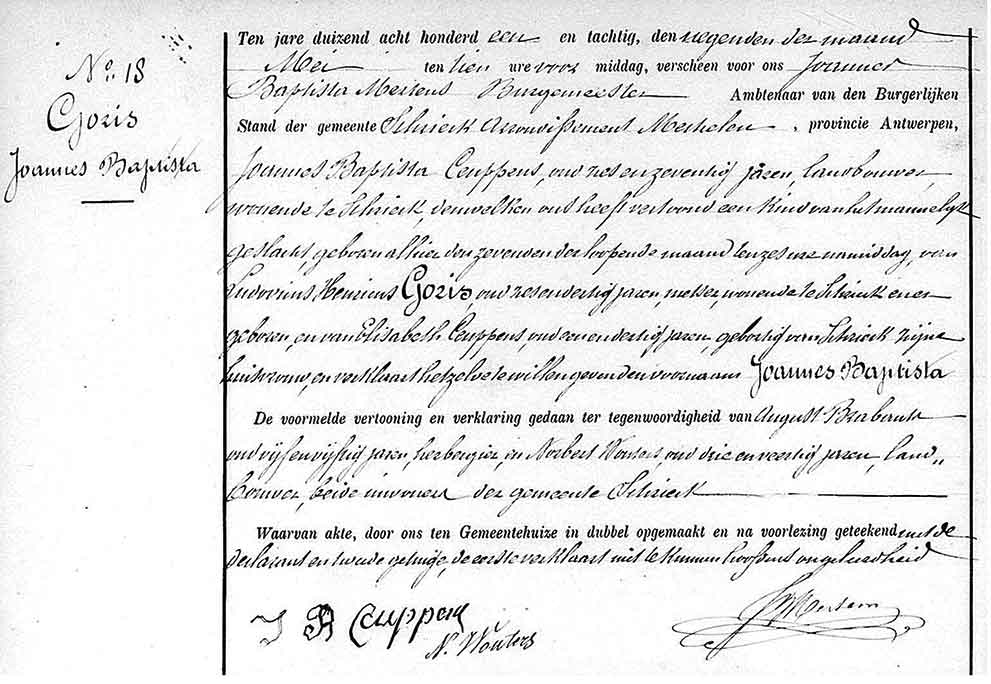 No. 18
Goris
Joannes Baptista
Ten jare duizend acht honderd een en tachtig, den negenden der maand
Mei ten tien ure voor middag, verscheen voor ons Joannes
Baptista Mertens Burgemeester Ambtenaar van den Burgerlijken
Stand der gemeente Schrieck Arrondissement Mechelen, provincie Antwerpen,
Joannes Baptista Ceuppens, oud zes en zeventig jaren, landbouwer,
wonende te Schrieck, denwelken ons heeft vertoond een kind van het mannelijk
geslacht, geboren alhier den zevenden der loopende maand ten zes ure namiddag, van
Ludovicus Henricus Goris, oud zes en dertig jaren, metser, wonende te Schrieck en er
geboren, en van Elisabeth Ceuppens, oud een en dertig jaren, geboortig van Schrieck zijne
huisvrouw, en verklaart hetzelve te willen geven den voornaam Joannes Baptista
De voormelde vertooning en verklaring gedaan ter tegenwoordigheid van August Brabants
oud vijf en vijftig jaren, herbergier, en Norbert Wouters, oud drie en veertig jaren, land„
bouwer, beide inwoners der gemeente Schrieck
Waarvan akte, door ons ten Gemeentehuize in dubbel opgemaakt en na voorlezing geteekend met de
declarant en tweede getuige, de eerste verklaart niet te kunnen hoofdens ongeleerdheid
J B Ceuppens
N. Wouters
JB Mertens